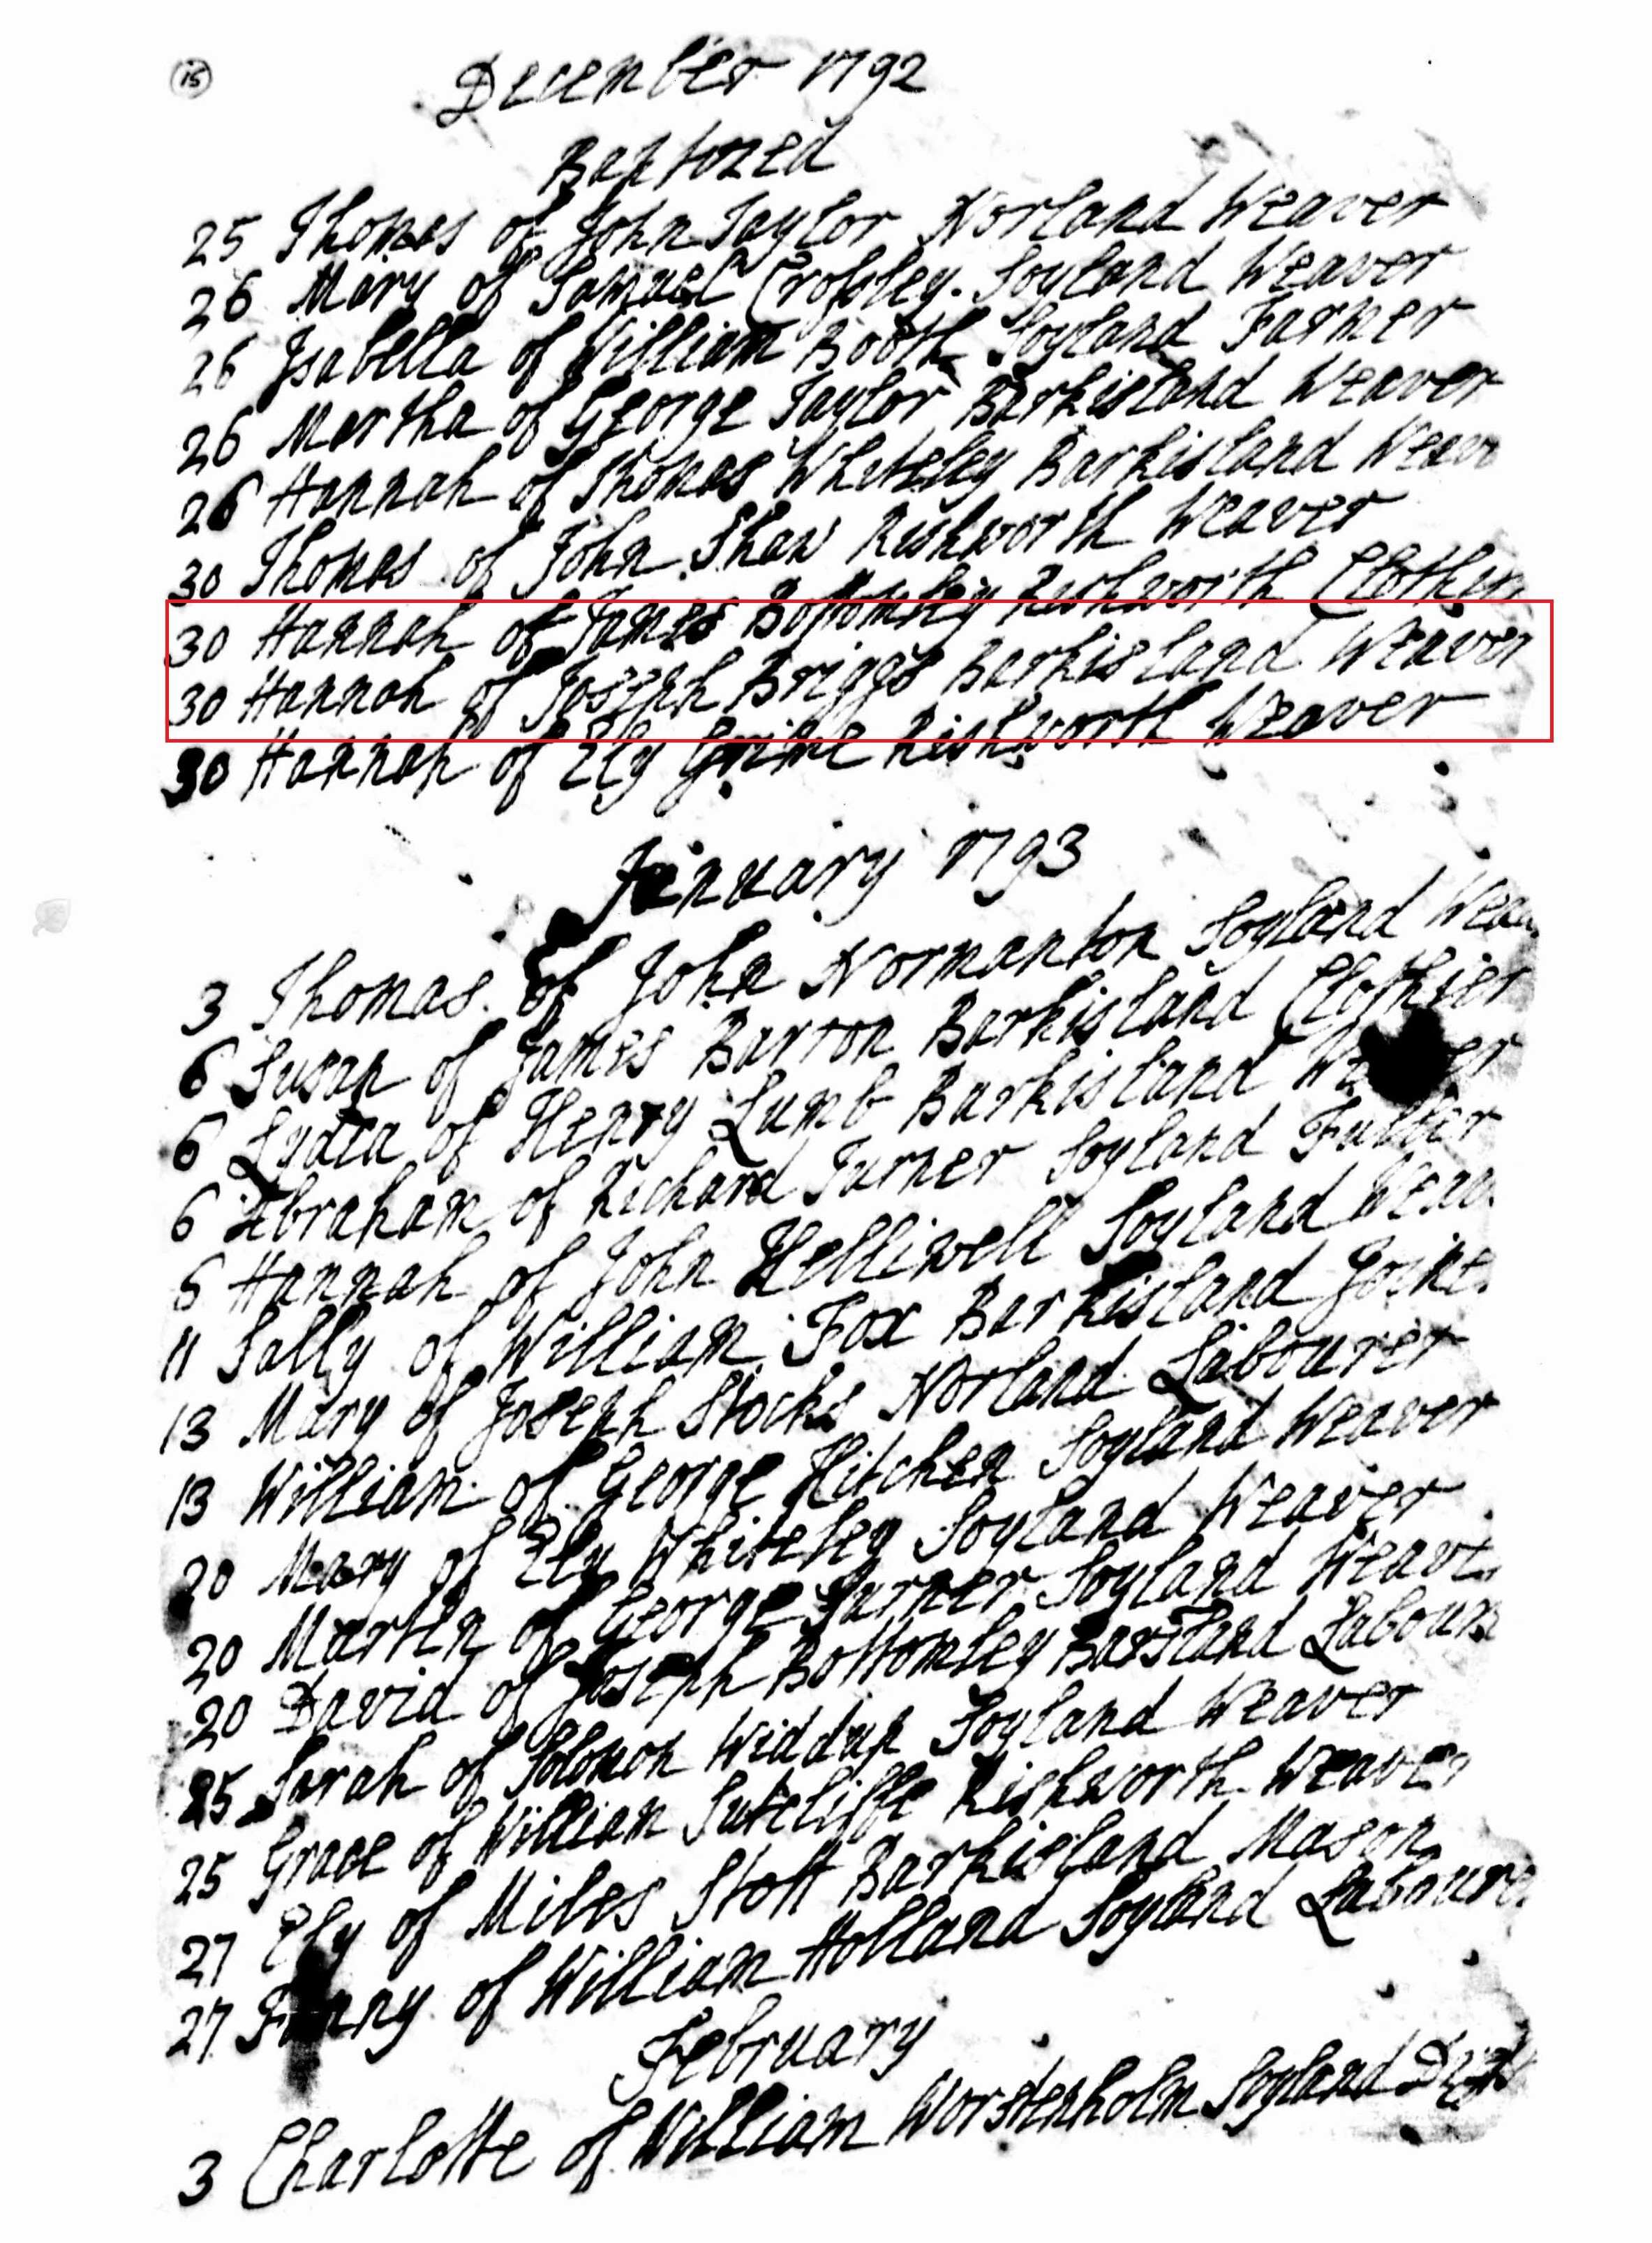 15
December 1792
Baptozed
25 Thomas of John Taylor Norland Weaver
26 Mary of Samuel Crofsley. Soyland Weaver
26 Isabella of William Booth Soyland Farmer
26 Martha of George Taylor Barkisland Weaver
26 Hannah of Thomas Whiteley Barkisland Weav
30 Thomas of John Shaw Rishworth Weaver
30 Hannah of James Bottomley Rishworth Clothier
30 Hannah of Joseph Briggs Barkisland Weaver
30 Hannah of Ely Grime Rishworth Weaver
January 1793
3 Thomas of John Normanton Soyland Weav
6 Susan of James Barton Barkisland Clothier
6 Lydia of Henry Lumb Barkisland
6 Abraham of Richard Turner Soyland Fuller
6 Hannah of John Helliwell Soyland Weav
11 Sally of William Fox Barkisland
13 Mary of Joseph Stocks Norland Labourer
13 William of George Hitchen Soyland Weaver
20 Mary of Ely Whiteley Soyland Weaver
20 Martin of George Turner Soyland Weave
20 David of Joseph Bottomley Labour
25 Sarah of Solomon Widdup Soyland Weaver
25 Grace of William Sutcliffe Rishworth Weaver
27 Ely of Miles Stott Barkisland Mason
27 of William Holland Soyland Laboure
February
3 Charlotte of William Worstenholm Soyland